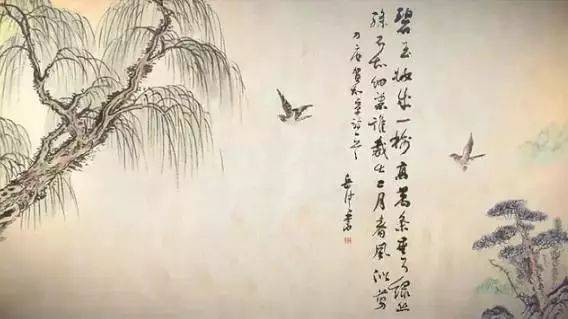 碧玉妝成一樹高萬条垂下綠丝
絛不知細葉誰裁出二月春風似剪
刀 唐賀知章詩
書